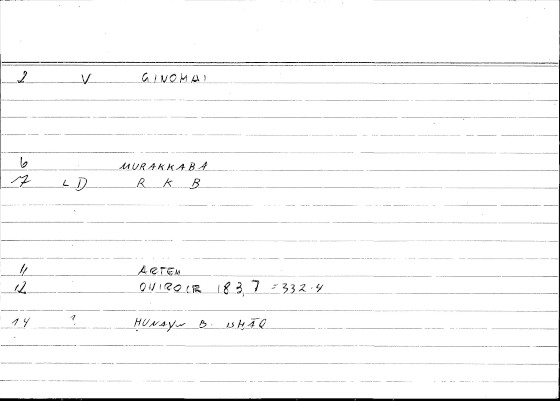 2 V GINOMAI
6 MURAKKABA
7 LD R K B
11 ARTEM
12 ONIROCR 183,7 = 332.4
14 ? ḤUNAYN B. ISḤĀQ